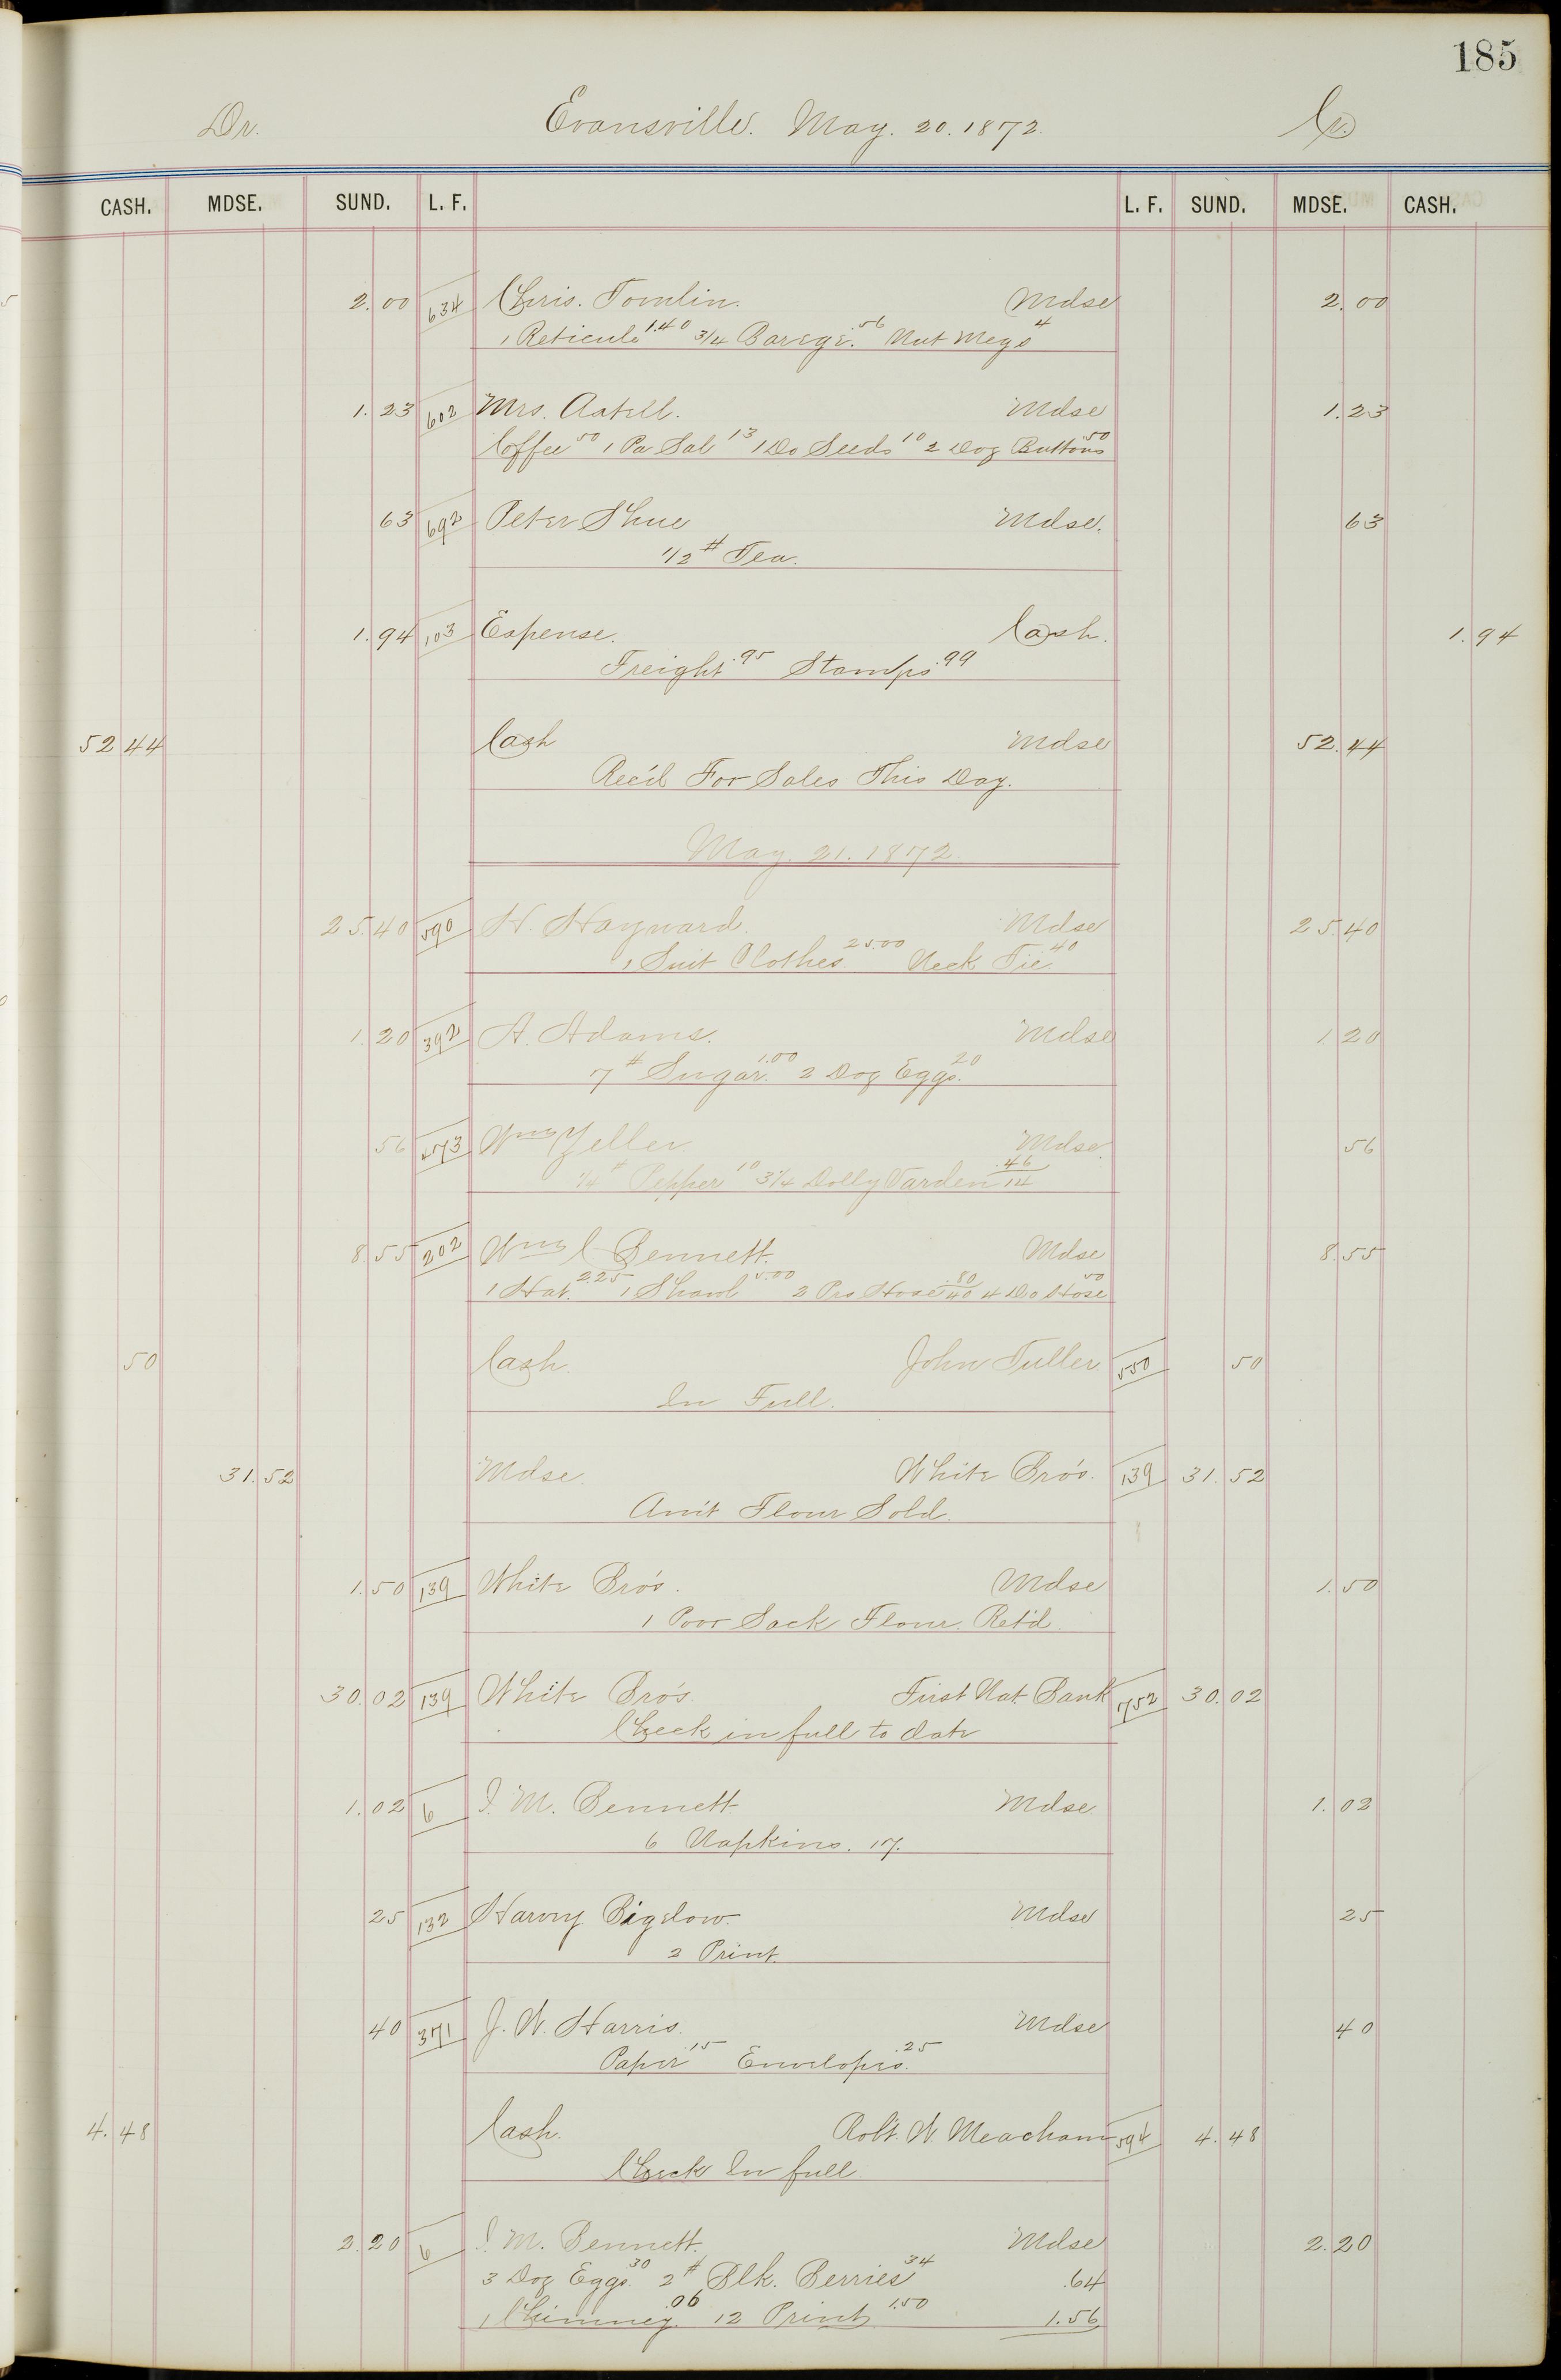 185
Dr. Evansville. May. 20. 1872. Cr.
CASH. MDSE. SUND. L. F. L. F. SUND. MDSE. CASH.
2.00 634 Chris. Tomlin. Mdse 2.00
1 Reticule 1.40 3/4 Barege. .56 Nut Megs 4
1.23 602 Mrs. Axtell. Mdse 1.23
Coffee 50 1 Pa Sal 13 1 Do Seeds 10 2 Doz Buttons 50
63 692 Peter Shue Mdse. 63
1/2 # Tea.
1.94 103 Expense. Cash. 1.94
Freight .95 Stamps .99
52 44 Cash Mdse 52.44
Rec'd For Sales This Day.
May. 21. 1872.
25.40 590 H. Hayward. Mdse 25.40
1 Suit Clothes. 25.00 Neck Tie. .40
1.20 392 A. Adams. Mdse 1.20
7 # Sugar. 1.00 2 Doz Eggs. 20
56 473 Wm Yeller Mdse. 56
1/4 # Pepper 10 3 1/4 Dolly Varden .46 14
8.55 202 Wm C Bennett. Mdse 8.55
1 Hat. 2.25 1 Shawl 5.00 2 Prs Hose .80 40 4 Do Hose 50
50 Cash. John Tuller 550 50
In Full.
31.52 Mdse White Bro's. 139 31.52
Am't Flour Sold.
1.50 139 White Bro's. Mdse 1.50
1 Poor Sack Flour. Ret'd.
30.02 139 White Bro's. First Nat. Bank 752 30.02
Check in full to date
1.02 6 I. M. Bennett Mdse 1.02
6 Napkins. 17.
25 132 Harvy Bigelow. Mdse 25
2 Print.
40 371 J. W. Harris. Mdse 40
Paper .15 Envelopes. .25
4.48 Cash. Rob't. W. Meacham 594 4.48
Check In full.
2.20 6 I. M. Bennett. Mdse 2.20
3 Doz Eggs. 30 2 # Blk. Berries 34 .64
1 Chimney. .06 12 Print 1.50 1.56